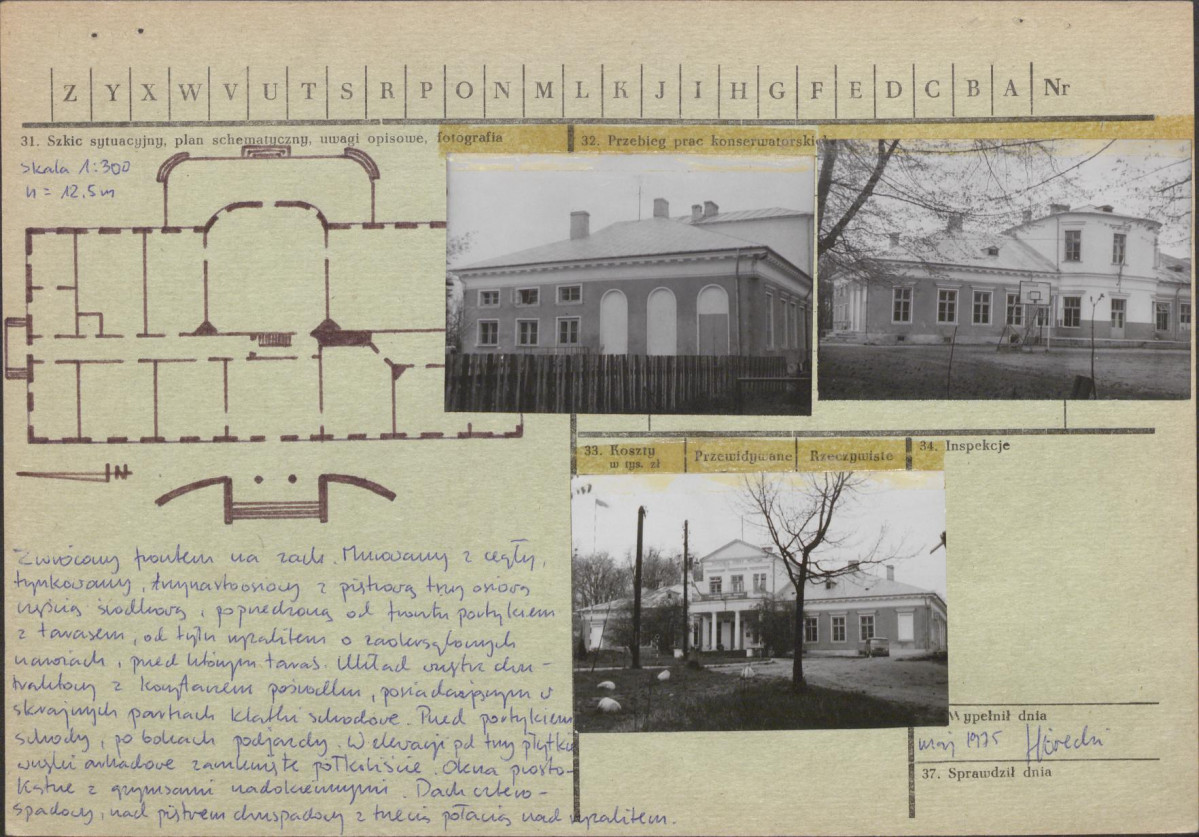 Z Y X W V U T S R P O N M L K J I H G F E D C B A Nr
31. Szkic sytuacyjny, plan schematyczny, uwagi opisowe, fotografia
32. Przebieg prac konserwatorskich
skala 1:300
h = 12,5m
N
33. Koszty
w tys. zł
Przewidywane
Rzeczywiste
34. Inspekcje
Zwrócony frontem na zach. Murowany z cegły,
tynkowany, trzynastoosiowy z piętrową trzy osiową
częścią środkową, poprzedzoną od frontu portykiem
z tarasem, od tyłu ryzalitem o zaokrąglonych
narożach, przed którym taras. Układ wnętrz dwu-
traktowy z korytarzem pośrodku, posiadającym w
skrajnych partiach klatki schodowe. Przed portykiem
schody, po bokach podjazdy. W elewacji pd trzy płytkie
wnęki arkadowe zamknięte półkoliście. Okna prosto-
kątne z gzymsami nadokiennymi. Dach cztero-
spadowy, nad piętrem dwuspadowy z trzecią połacią nad ryzalitem.
Wypełnił dnia
maj 1975
37. Sprawdził dnia